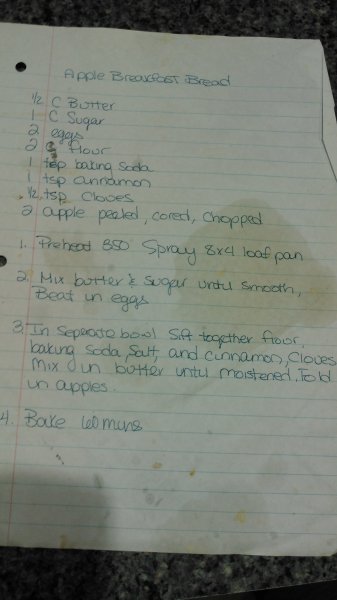 Apple Breakfast Bread
1/2 C Butter
1 C Sugar
2 eggs
2 C flour
1 tsp baking soda
1 tsp cinnamon
1/2 tsp Cloves
2 apple peeled, cored, Chopped
1. Preheat 350 Spray 8x4 loaf pan
2. Mix butter & Sugar until smooth,
Beat in eggs
3. In Seperate bowl Sift together flour,
baking Soda, Salt, and cinnamon, Cloves
Mix in butter until moistened, Fold
in apples.
4. Bake 60 mins